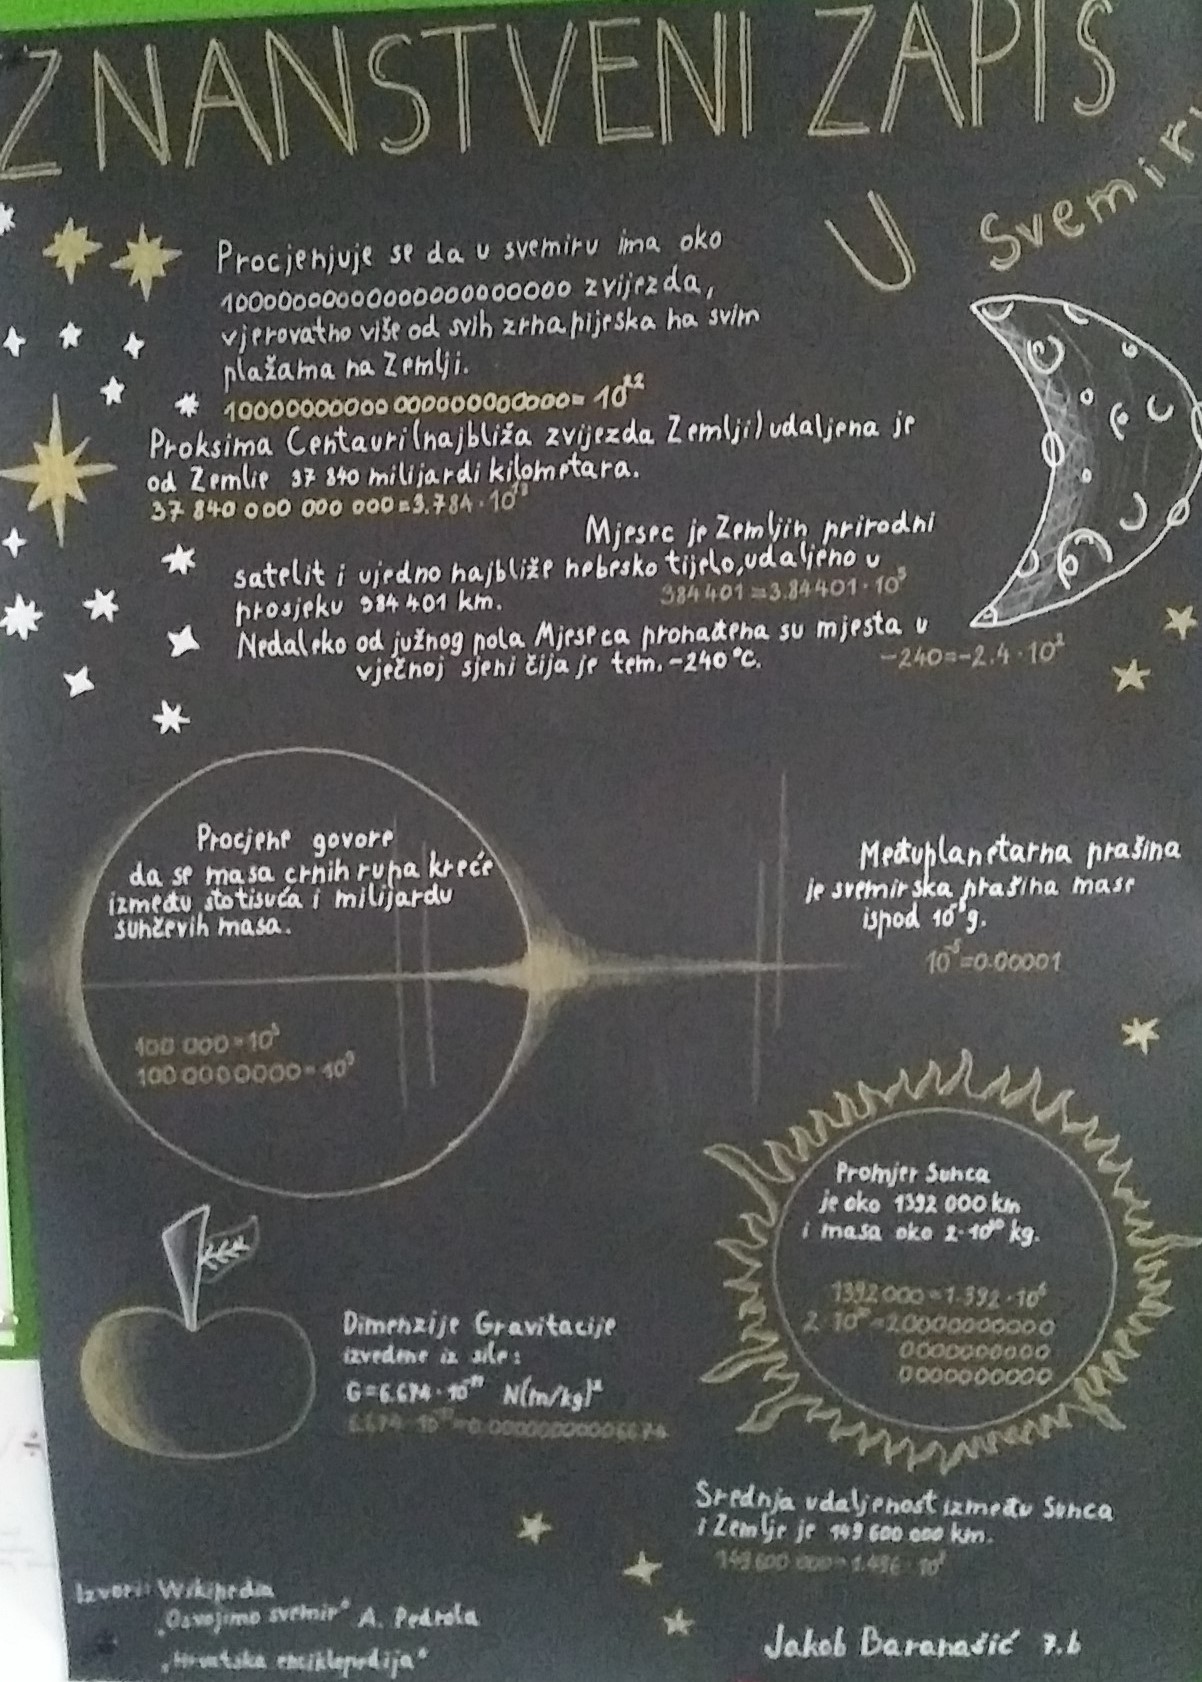 ZNANSTVENI ZAPIS
U Svemiru
Procjenjuje se da u svemiru ima oko
10000000000000000000000 zvijezda,
vjerovatno više od svih zrna pijeska na svim
plažama na Zemlji.
10000000000 000000000000= 10²²
Proksima Centauri (najbliža zvijezda Zemlji) udaljena je
od Zemlje 37 840 milijardi kilometara.
37 840 000 000 000=3.784·10¹³
Mjesec je Zemljin prirodni
satelit i ujedno najbliže nebesko tijelo, udaljeno u
prosjeku 384 401 km.
384 401=3.84401·10⁵
Nedaleko od južnog pola Mjeseca pronađena su mjesta u
vječnoj sjeni čija je tem. -240°C.
-240=-2.4·10²
Procjene govore
da se masa crnih rupa kreće
između stotisuća i milijardu
sunčevih masa.
100 000=10⁵
100 0000000=10⁹
Međuplanetarna prašina
je svemirska prašina mase
ispod 10⁻⁵g.
10⁻⁵=0.00001
Promjer Sunca
je oko 1392 000 km
i masa oko 2·10³⁰ kg.
1392 000=1.392·10⁶
2·10³⁰=20000000000
0000000000
0000000000
Dimenzije Gravitacije
izvedene iz sile:
G=6.674·10⁻¹¹ N(m/kg)²
6.674·10⁻¹¹=0.00000000006674
Srednja udaljenost između Sunca
i Zemlje je 149 600 000 km.
149 600 000=1.496·10⁸
Izvori: Wikipedia
„Osvojimo svemir" A. Pedrola
„Hrvatska enciklopedija"
Jakob Baranašić 7.b